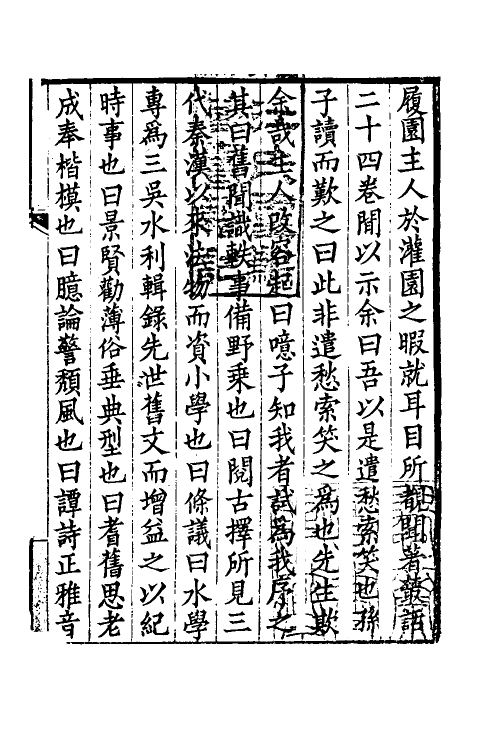 履園主人於灌園之暇就耳目所覩聞著叢話
二十四卷閒以示余曰吾以是遣愁索笑也孫
子讀而歎之曰此非遣愁索笑之為也先生欺
余哉主人改容起曰噫子知我者試為我序之
其曰舊聞識軼事備野乘也曰閱古擇所見三
代秦漢以來法物而資小學也曰條議曰水學
專為三吳水利輯錄先世舊文而增益之以紀
時事也曰景賢勸薄俗垂典型也曰耆舊思老
成奉楷模也曰臆論警頹風也曰譚詩正雅音